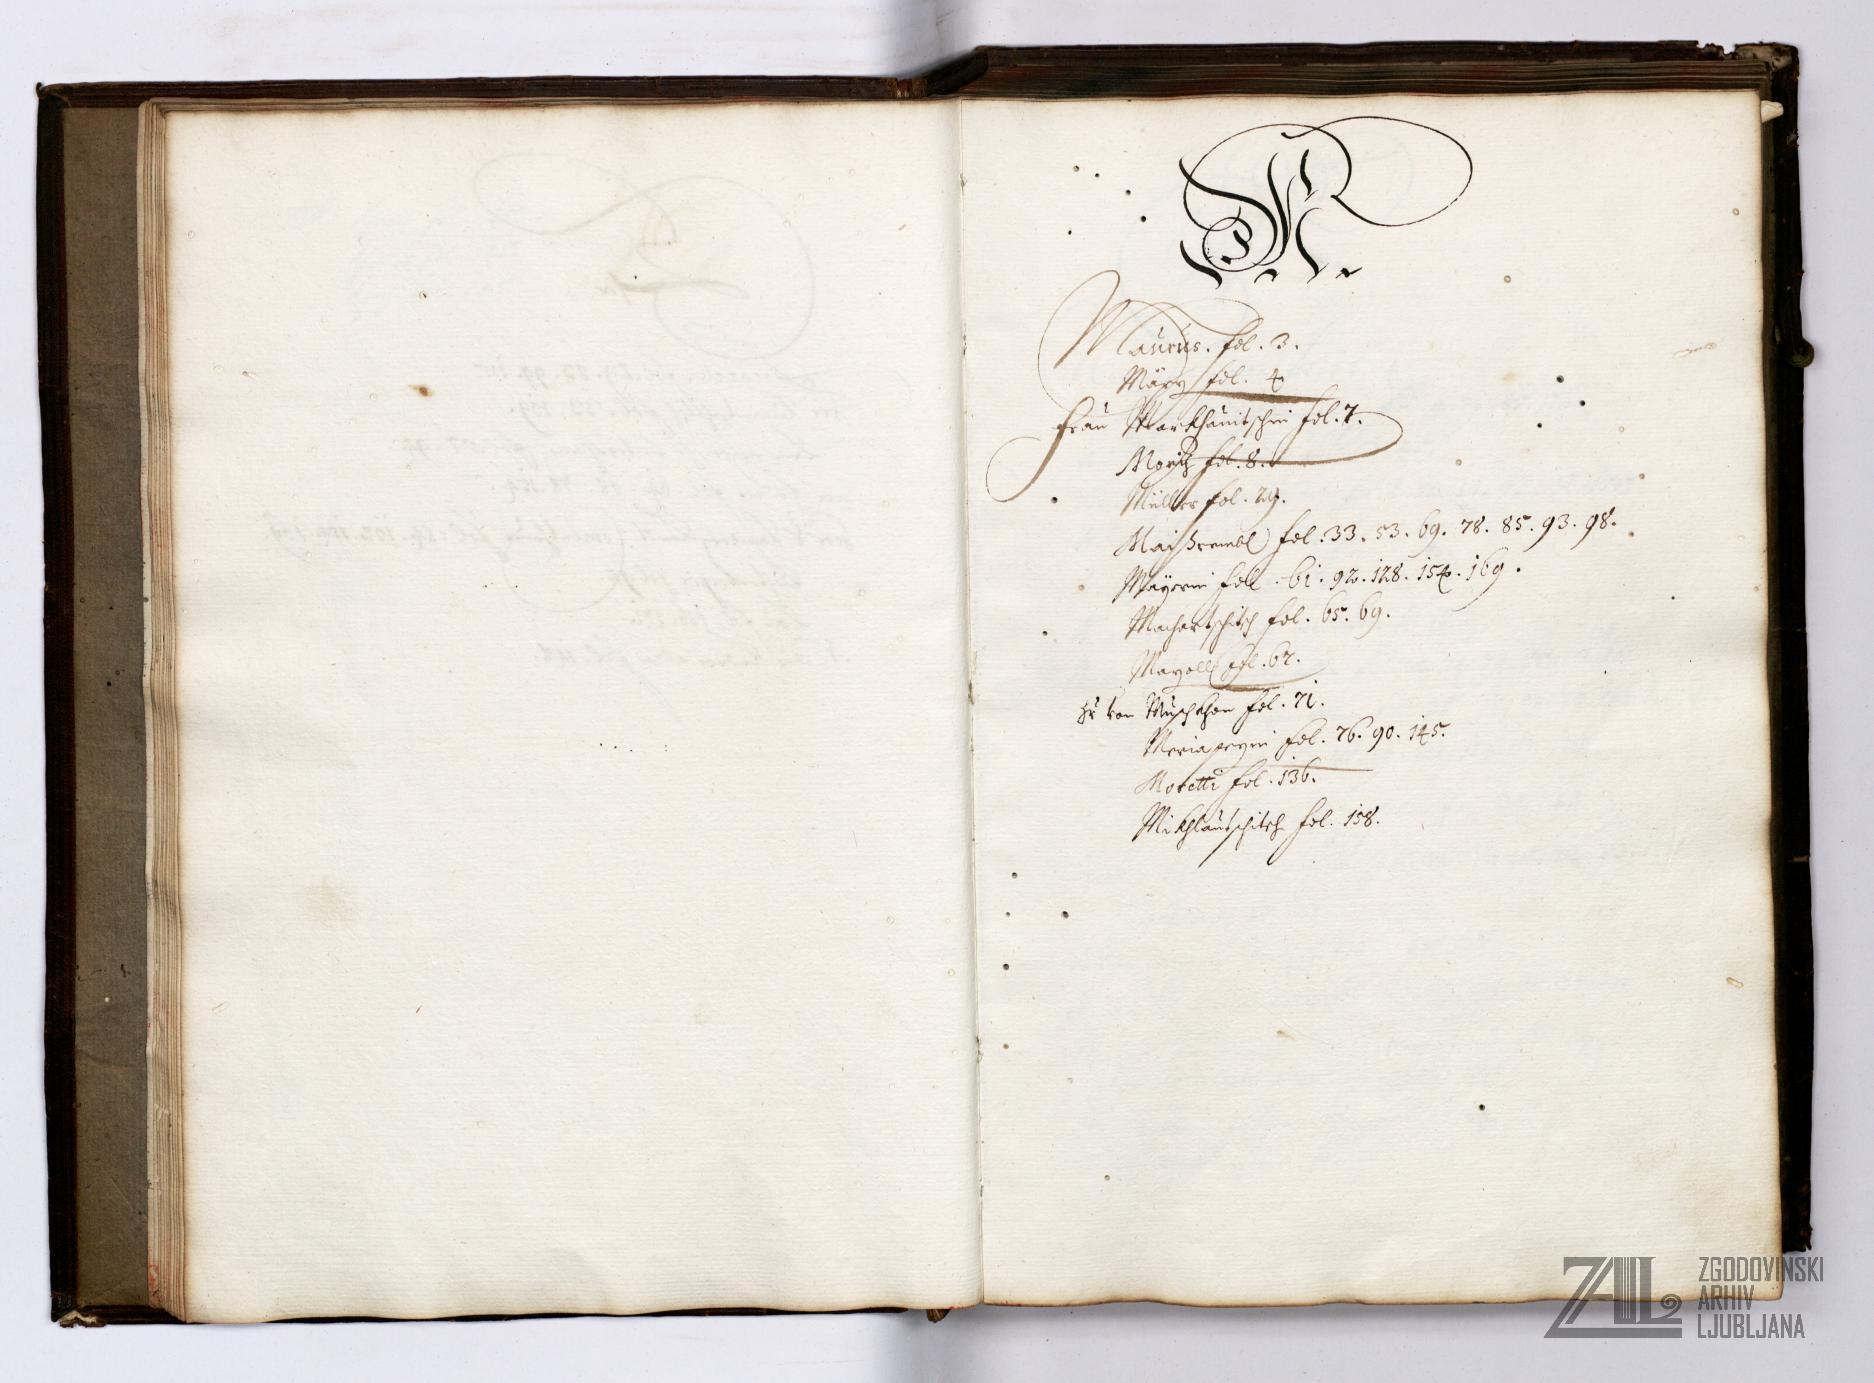 M
Maurus. fol. 3.
Märy fol. 4
Frau Markhauitschin fol. 7.
Moritz fol. 8.
Müller fol. 29.
Maißrembl fol. 33. 53. 69. 78. 85. 93. 98.
Mayerin fol. 61. 92. 128. 154. 169.
Machertschitsch fol. 65. 69.
Mayoll fol. 67.
Hr von Muschkhon fol. 71.
fol. 76. 90. 145.
Moretti fol. 136.
Mikhlautschitsch fol. 158.
ZAL
ZGODOVINSKI
ARHIV
LJUBLJANA